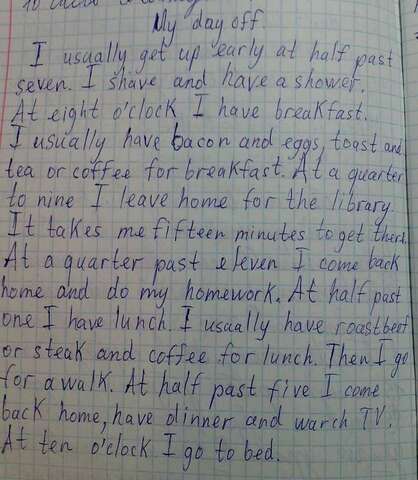 My day off.
I usually get up early at half past
seven. I shave and have a shower.
At eight o'clock I have breakfast.
I usually have bacon and eggs, toast and
tea or coffee for breakfast. At a quarter
to nine I leave home for the library.
It takes me fifteen minutes to get there.
At a quarter past eleven I come back
home and do my homework. At half past
one I have lunch. I usually have roastbeef
or steak and coffee for lunch. Then I go
for a walk. At half past five I come
back home, have dinner and warch TV.
At ten o'clock I go to bed.